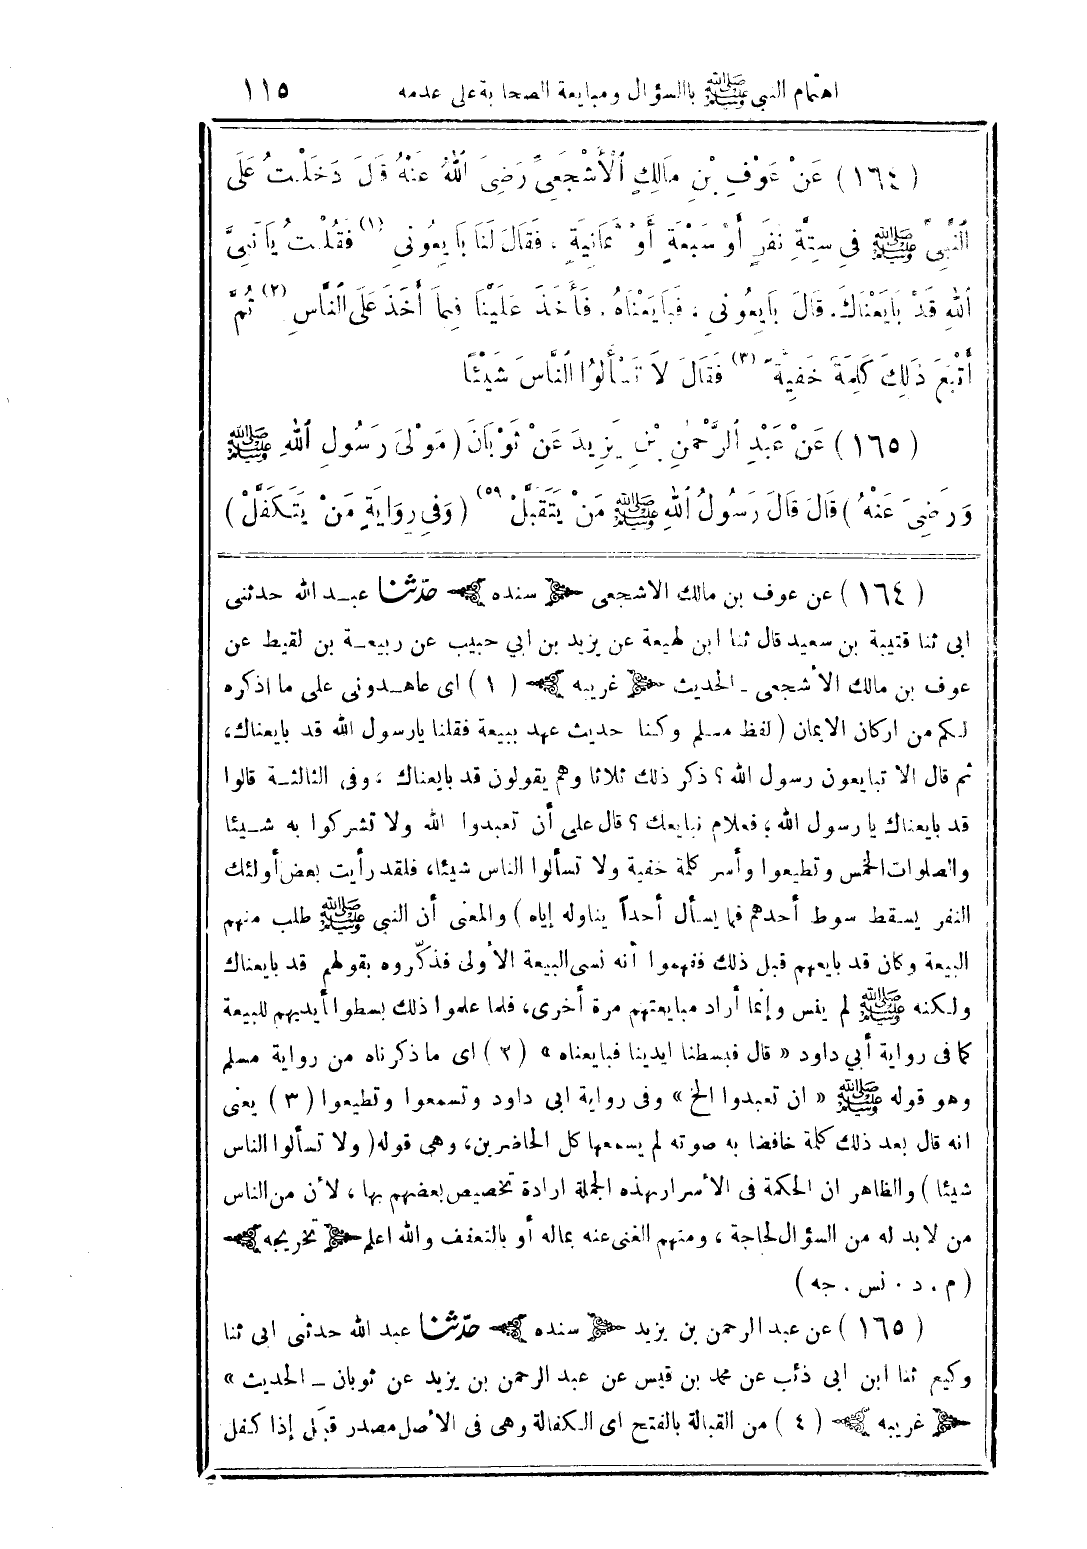 اهتمام النبي ﷺ بالسؤال ومبايعة الصحابة على عدمه ١١٥
(١٦٤) عَنْ عَوْفِ بْنِ مَالِكٍ ٱلْأَشْجَعِيِّ رَضِيَ ٱللهُ عَنْهُ قَالَ دَخَلْتُ عَلَى
ٱلنَّبِيِّ ﷺ فِي سِتَّةِ نَفَرٍ أَوْ سَبْعَةٍ أَوْ ثَمَانِيَةٍ ، فَقَالَ لَنَا بَايِعُونِي (١) فَقُلْتُ يَا نَبِيَّ
ٱللهِ قَدْ بَايَعْنَاكَ. قَالَ بَايِعُونِي ، فَبَايَعْنَاهُ. فَأَخَذَ عَلَيْنَا فِيمَا أَخَذَ عَلَى النَّاسِ (٢) ثُمَّ
أَتْبَعَ ذَلِكَ كَلِمَةً خَفِيَّةً (٣) فَقَالَ لَا تَسْأَلُوا النَّاسَ شَيْئًا
(١٦٥) عَنْ عَبْدِ ٱلرَّحْمٰنِ بْنِ يَزِيدَ عَنْ ثَوْبَانَ (مَوْلَى رَسُولِ ٱللهِ ﷺ
وَرَضِيَ عَنْهُ) قَالَ قَالَ رَسُولُ ٱللهِ ﷺ مَنْ يَتَقَبَّلْ (٥٩) (وَفِي رِوَايَةٍ مَنْ يَتَكَفَّلْ)
(١٦٤) عن عوف بن مالك الاشجعى ﴿ سنده ﴾ حدّثنا عبد الله حدثنى
ابى ثنا قتيبة بن سعيد قال ثنا ابن لهيعة عن يزيد بن ابي حبيب عن ربيعة بن لقيط عن
عوف بن مالك الأشجعى ـ الحديث ﴿ غريبه ﴾ (١) اى عاهدونى على ما اذكره
لكم من اركان الايمان (لفظ مسلم وكنا حديث عهد ببيعة فقلنا يا رسول الله قد بايعناك،
ثم قال الا تبايعون رسول الله ؟ ذكر ذلك ثلاثا وهم يقولون قد بايعناك ، وفى الثالثة قالوا
قد بايعناك يا رسول الله ؛ فعلام نبايعك ؟ قال على أن تعبدوا الله ولا تشركوا به شيئا
والصلوات الخمس وتطيعوا وأسر كلمة خفية ولا تسألوا الناس شيئا، فلقد رأيت بعض أولئك
النفر يسقط سوط أحدهم فما يسأل أحداً يناوله إياه) والمعنى أن النبي ﷺ طلب منهم
البيعة وكان قد بايعهم قبل ذلك ففهموا أنه نسى البيعة الأولى فذكّروه بقولهم قد بايعناك
ولكنه ﷺ لم ينس وإنما أراد مبايعتهم مرة أخرى، فلما علموا ذلك بسطوا أيديهم للبيعة
كما فى رواية أبي داود « قال فبسطنا ايدينا فبايعناه » (٢) اى ما ذكرناه من رواية مسلم
وهو قوله ﷺ « ان تعبدوا الخ » وفى رواية ابى داود وتسمعوا وتطيعوا (٣) يعنى
انه قال بعد ذلك كلمة خافضا به صوته لم يسمعها كل الحاضرين، وهى قوله (ولا تسألوا الناس
شيئا) والظاهر ان الحكمة فى الأسرار بهذه الجملة ارادة تخصيص بعضهم بها ، لأن من الناس
من لابد له من السؤال لحاجة ، ومنهم الغنى عنه بماله أو بالتعفف والله اعلم ﴿ تخريجه ﴾
(م . د . نس . جه)
(١٦٥) عن عبد الرحمن بن يزيد ﴿ سنده ﴾ حدّثنا عبد الله حدثنى ابى ثنا
وكيع ثنا ابن ابى ذئب عن محمد بن قيس عن عبد الرحمن بن يزيد عن ثوبان ـ الحديث »
﴿ غريبه ﴾ (٤) من القبالة بالفتح اى الكفالة وهى فى الأصل مصدر قبَل إذا كفل